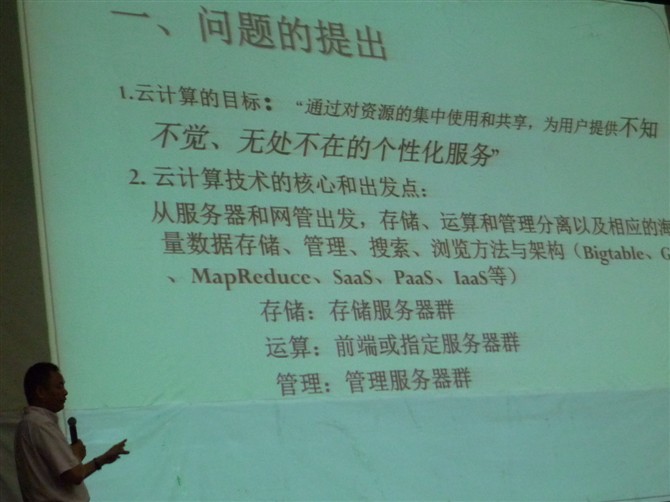 一、问题的提出
1.云计算的目标：“通过对资源的集中使用和共享，为用户提供不知
不觉、无处不在的个性化服务”
2. 云计算技术的核心和出发点：
从服务器和网管出发，存储、运算和管理分离以及相应的海
量数据存储、管理、搜索、浏览方法与架构（Bigtable、G
、MapReduce、SaaS、PaaS、IaaS等）
存储：存储服务器群
运算：前端或指定服务器群
管理：管理服务器群